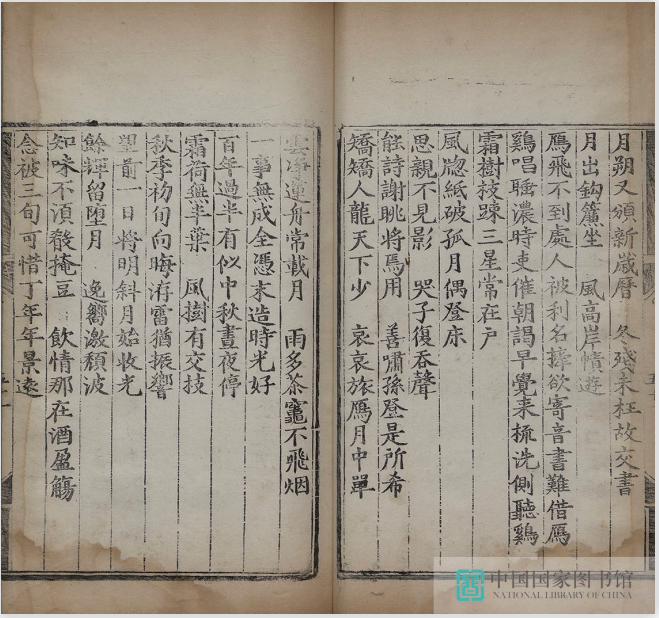 月朔又頒新歲曆　冬殘来枉故交書
月出鈎簾坐　風高岸幘遊
鴈飛不到處人被利名牽欲寄音書難借鴈
鷄唱曉濃時吏催朝謁早覺来梳洗側聽鷄
霜樹枝踈三星常在戶
風牕紙破孤月偶登床
思親不見影　哭子復吞聲
能詩謝眺將焉用　善嘯孫登是所希
矯矯人龍天下少　哀哀旅鴈月中單
雲海運舟常載月　雨多茶竈不飛烟
一事無成全憑末造時光好
百年過半有似中秋晝夜停
霜荷無半葉　風樹有交技
秋季初旬向晦洊雷猶振響
望前一日將明斜月始收光
餘輝留堕月　逸嚮激頹波
知味不須殽掩豆　飲情那在酒盈觴
念被三旬可惜丁年年景遠
中国国家图书馆
NATIONAL LIBRARY OF CHINA